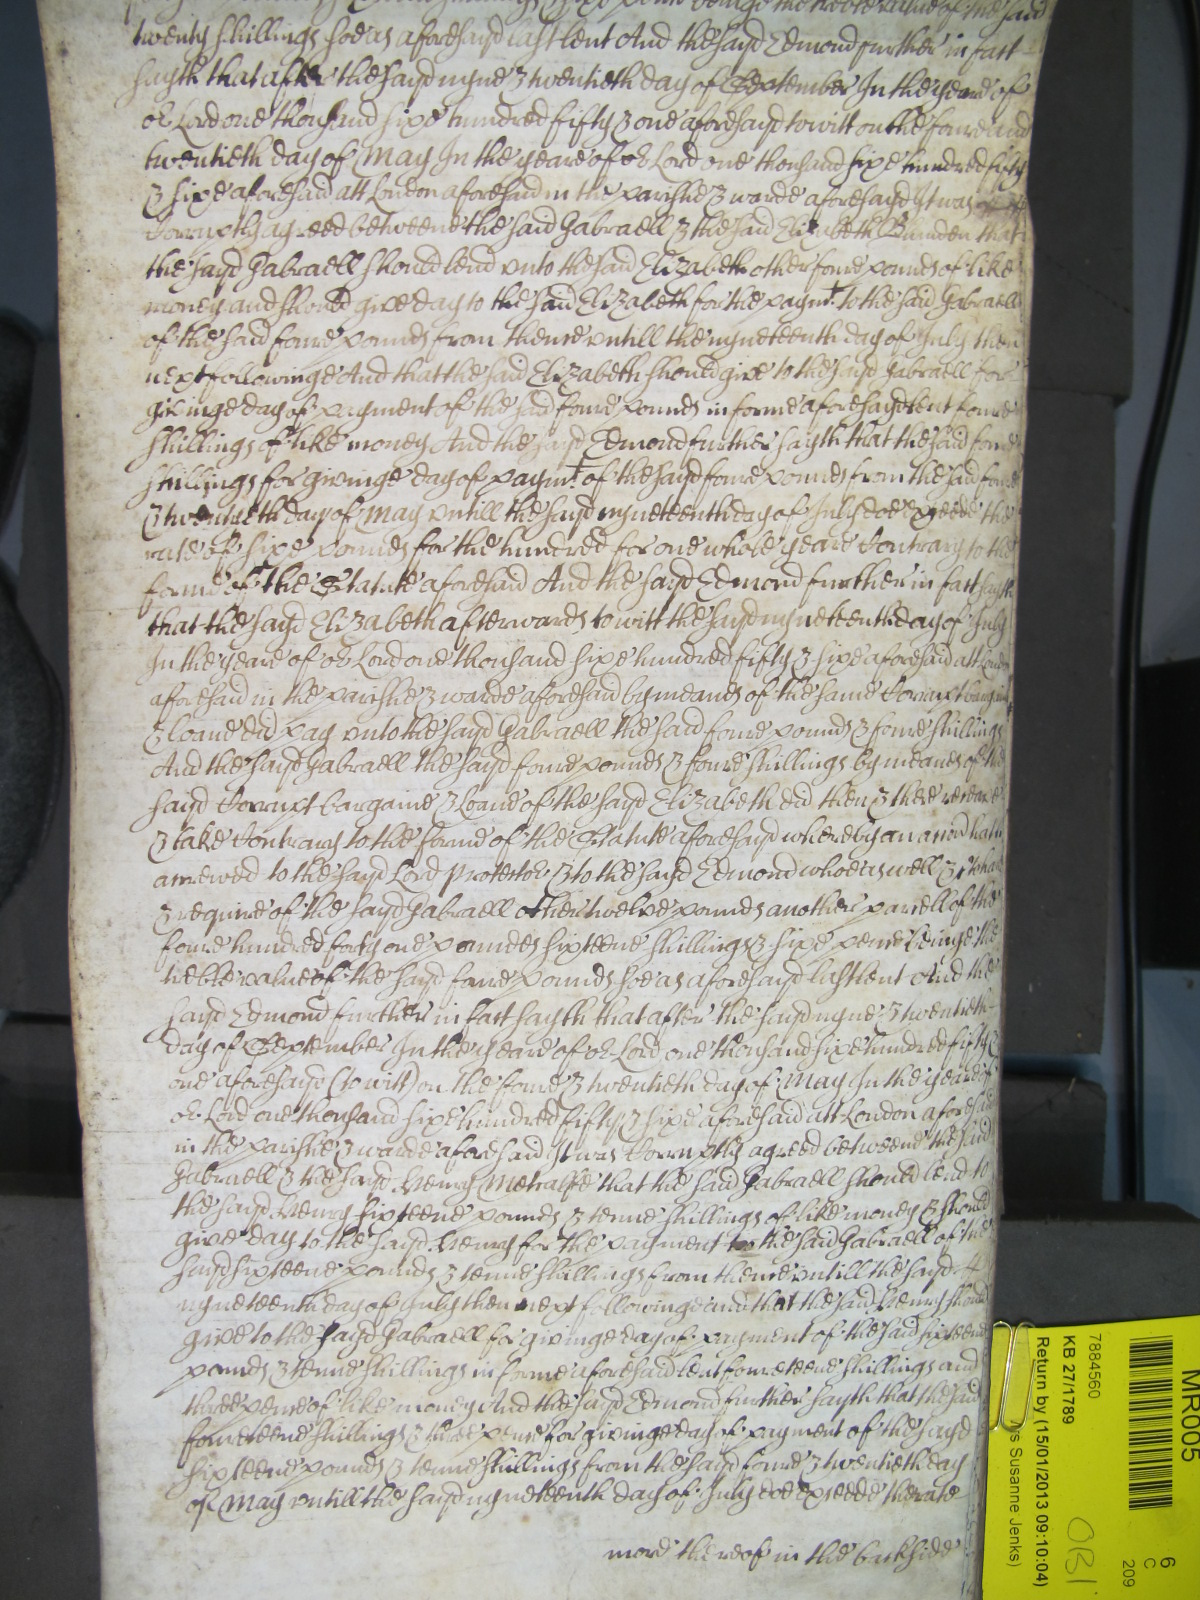 beinge the treble value of the said
twenty shillings soe as aforesayd last lent And the sayd Edmond further in fact
sayth that after the sayd nyne & twentieth day of September In the yeare of
or Lord one thousand sixe hundred fifty & one aforesayd to witt on the foure and
twentieth day of May In the yeare of or Lord one thousand sixe hundred fifty
& sixe aforesaid att London aforesaid in the parishe & warde aforesayd It was
Corruptly agreed betweene the said Gabraell & the said Elizabeth that
the sayd Gabraell should lend unto the said Elizabeth other foure pounds of like
money and should give day to the said Elizabeth for the paymt to the said Gabraell
of the said foure pounds from thence untill the nyneteenth day of July then
next followinge And that the said Elizabeth should give to the sayd Gabraell for
givinge day of payment of the said foure pounds in forme aforesayd lent foure
shillings of like money And the sayd Edmond further sayth that the said foure
shillings for givinge day of paymt of the sayd foure pounds from the said foure
& twentieth day of May untill the sayd nyneteenth day of July doe exceede the
rate of sixe pounds for the hundred for one whole yeare Contrary to the
forme of the Statute aforesaid And the sayd Edmond further in fact sayth
that the sayd Elizabeth afterwards to witt the sayd nyneteenth day of July
In the yeare of or Lord one thousand sixe hundred fifty & sixe aforesaid att London
aforesaid in the parishe & warde aforesaid by meanes of the same Corrupt bargaine
& loane did pay unto the sayd Gabraell the said foure pounds & foure shillings
And the sayd Gabraell the sayd foure pounds & foure shillings by meanes of the
sayd Corrupt bargaine & Loane of the sayd Elizabeth did then & there receave
& take Contrary to the forme of the Statute aforesayd whereby an accion hath
accrewed to the sayd Lord Protector & to the sayd Edmond whoe as well &c to have
& require of the sayd Gabraell other twelve pounds another parcell of the
foure hundred forty one poundes sixteene shillings & sixe pence beinge the
treble value of the sayd foure pounds soe as aforesayd last lent And the
sayd Edmond further in fact sayth that after the sayd nyne & twentieth
day of September In the yeare of or Lord one thousand sixe hundred fifty &
one aforesayd (to witt) on the foure & twentieth day of May In the yeare of
or Lord one thousand sixe hundred fifty & sixe aforesaid att London aforesaid
in the parishe & warde aforesaid It was Corruptly agreed betweene the said
Gabraell & the sayd Henry Metcalfe that the said Gabraell should lend to
the sayd Henry sixteene pounds & tenne shillings of like money & should
give day to the sayd Henry for the payment to the said Gabraell of the
sayd sixteene pounds & tenne shillings from thence untill the sayd
nyneteenth day of July then next followinge and that the said Henry should
give to the sayd Gabraell for givinge day of payment of the said sixteene
pounds & tenne shillings in forme aforesaid lent foureteene shillings and
three pence of like money And the sayd Edmond further sayth that the said
foureteene shillings & three pence for givinge day of payment of the sayd
sixteene pounds & tenne shillings from the sayd foure & twentieth day
of May untill the sayd nyneteenth day of July doe exceede the rate
more thereof in the backside
MR005
6
C
209
7884560
KB 27/1789
Return by (15/01/2013 09:10:04)
Susanne Jenks)
OB1